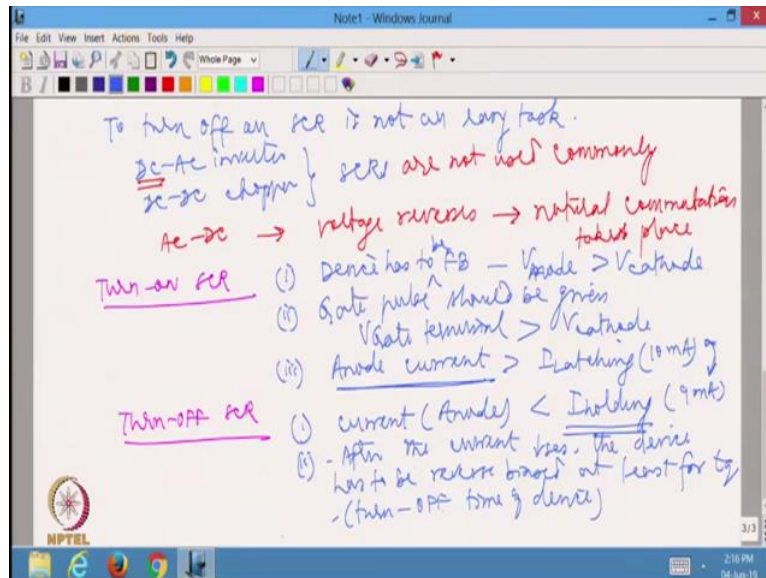 Note1 - Windows Journal
File Edit View Insert Actions Tools Help
Whole Page
B I
To turn off an SCR is not an easy task.
DC-AC inverter
DC-DC chopper } SCRs are not used commonly
AC-DC → voltage reverses → natural commutation
takes place
Turn-on SCR (i) Device has to be FB - VAnode > Vcathode
(ii) Gate pulse should be given
VGate terminal > Vcathode
(iii) Anode current > ILatching (10 mA)
Turn-OFF SCR (i) current (Anode) < Iholding (9 mA)
(ii) - After the current the device
has to be reverse biased at least for tq
- (turn-OFF time of device)
NPTEL
3/3
2:16 PM
04-Jun-19